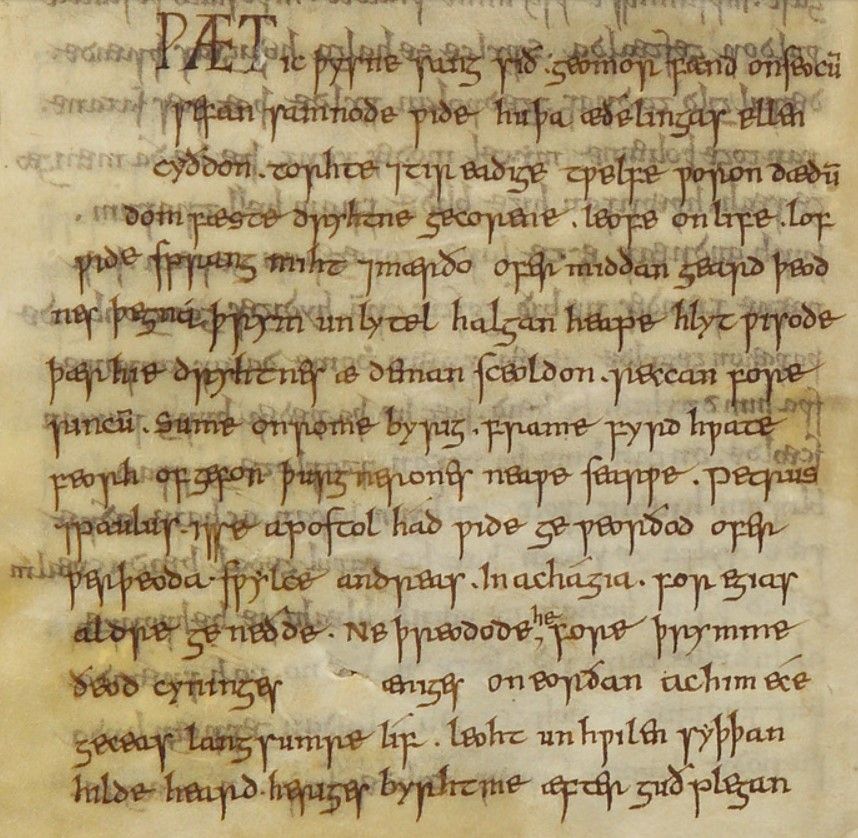 ǷÆT ic þysne sang sið. geomor fand onseocū
sefan samnode ƿide huþa æðelingas ellen
cyðdon. torhte ⁊tir eadige tƿelfe ƿoron dædū
dom fæste dryhtne gecorene. leofe onlife. lof
ƿide sprang miht ⁊mærðo ofer middan geard þeod
nes þegna þrym unlytel halgan heape hlyt ƿisode
þær hie dryhtnes æ deman sceoldon. reccan fore
rincū. Sume onrome byrig. frame fyrd hƿate
feorh ofgefon þurg nerones neaƿe searƿe. Petrus
⁊paulus. is se apostol had ƿide ge ƿeorðod ofer
ƿerþeoda. sƿylce andreas. In achagia. for egias
aldre ge neðde. Ne þreodode he fore þrymme
ðeod cyninges æniges oneorðan achim ece
geceas langsumre lif. leoht unhƿilen syþþan
hilde heard. heriges byrhtme æfter guðplegan